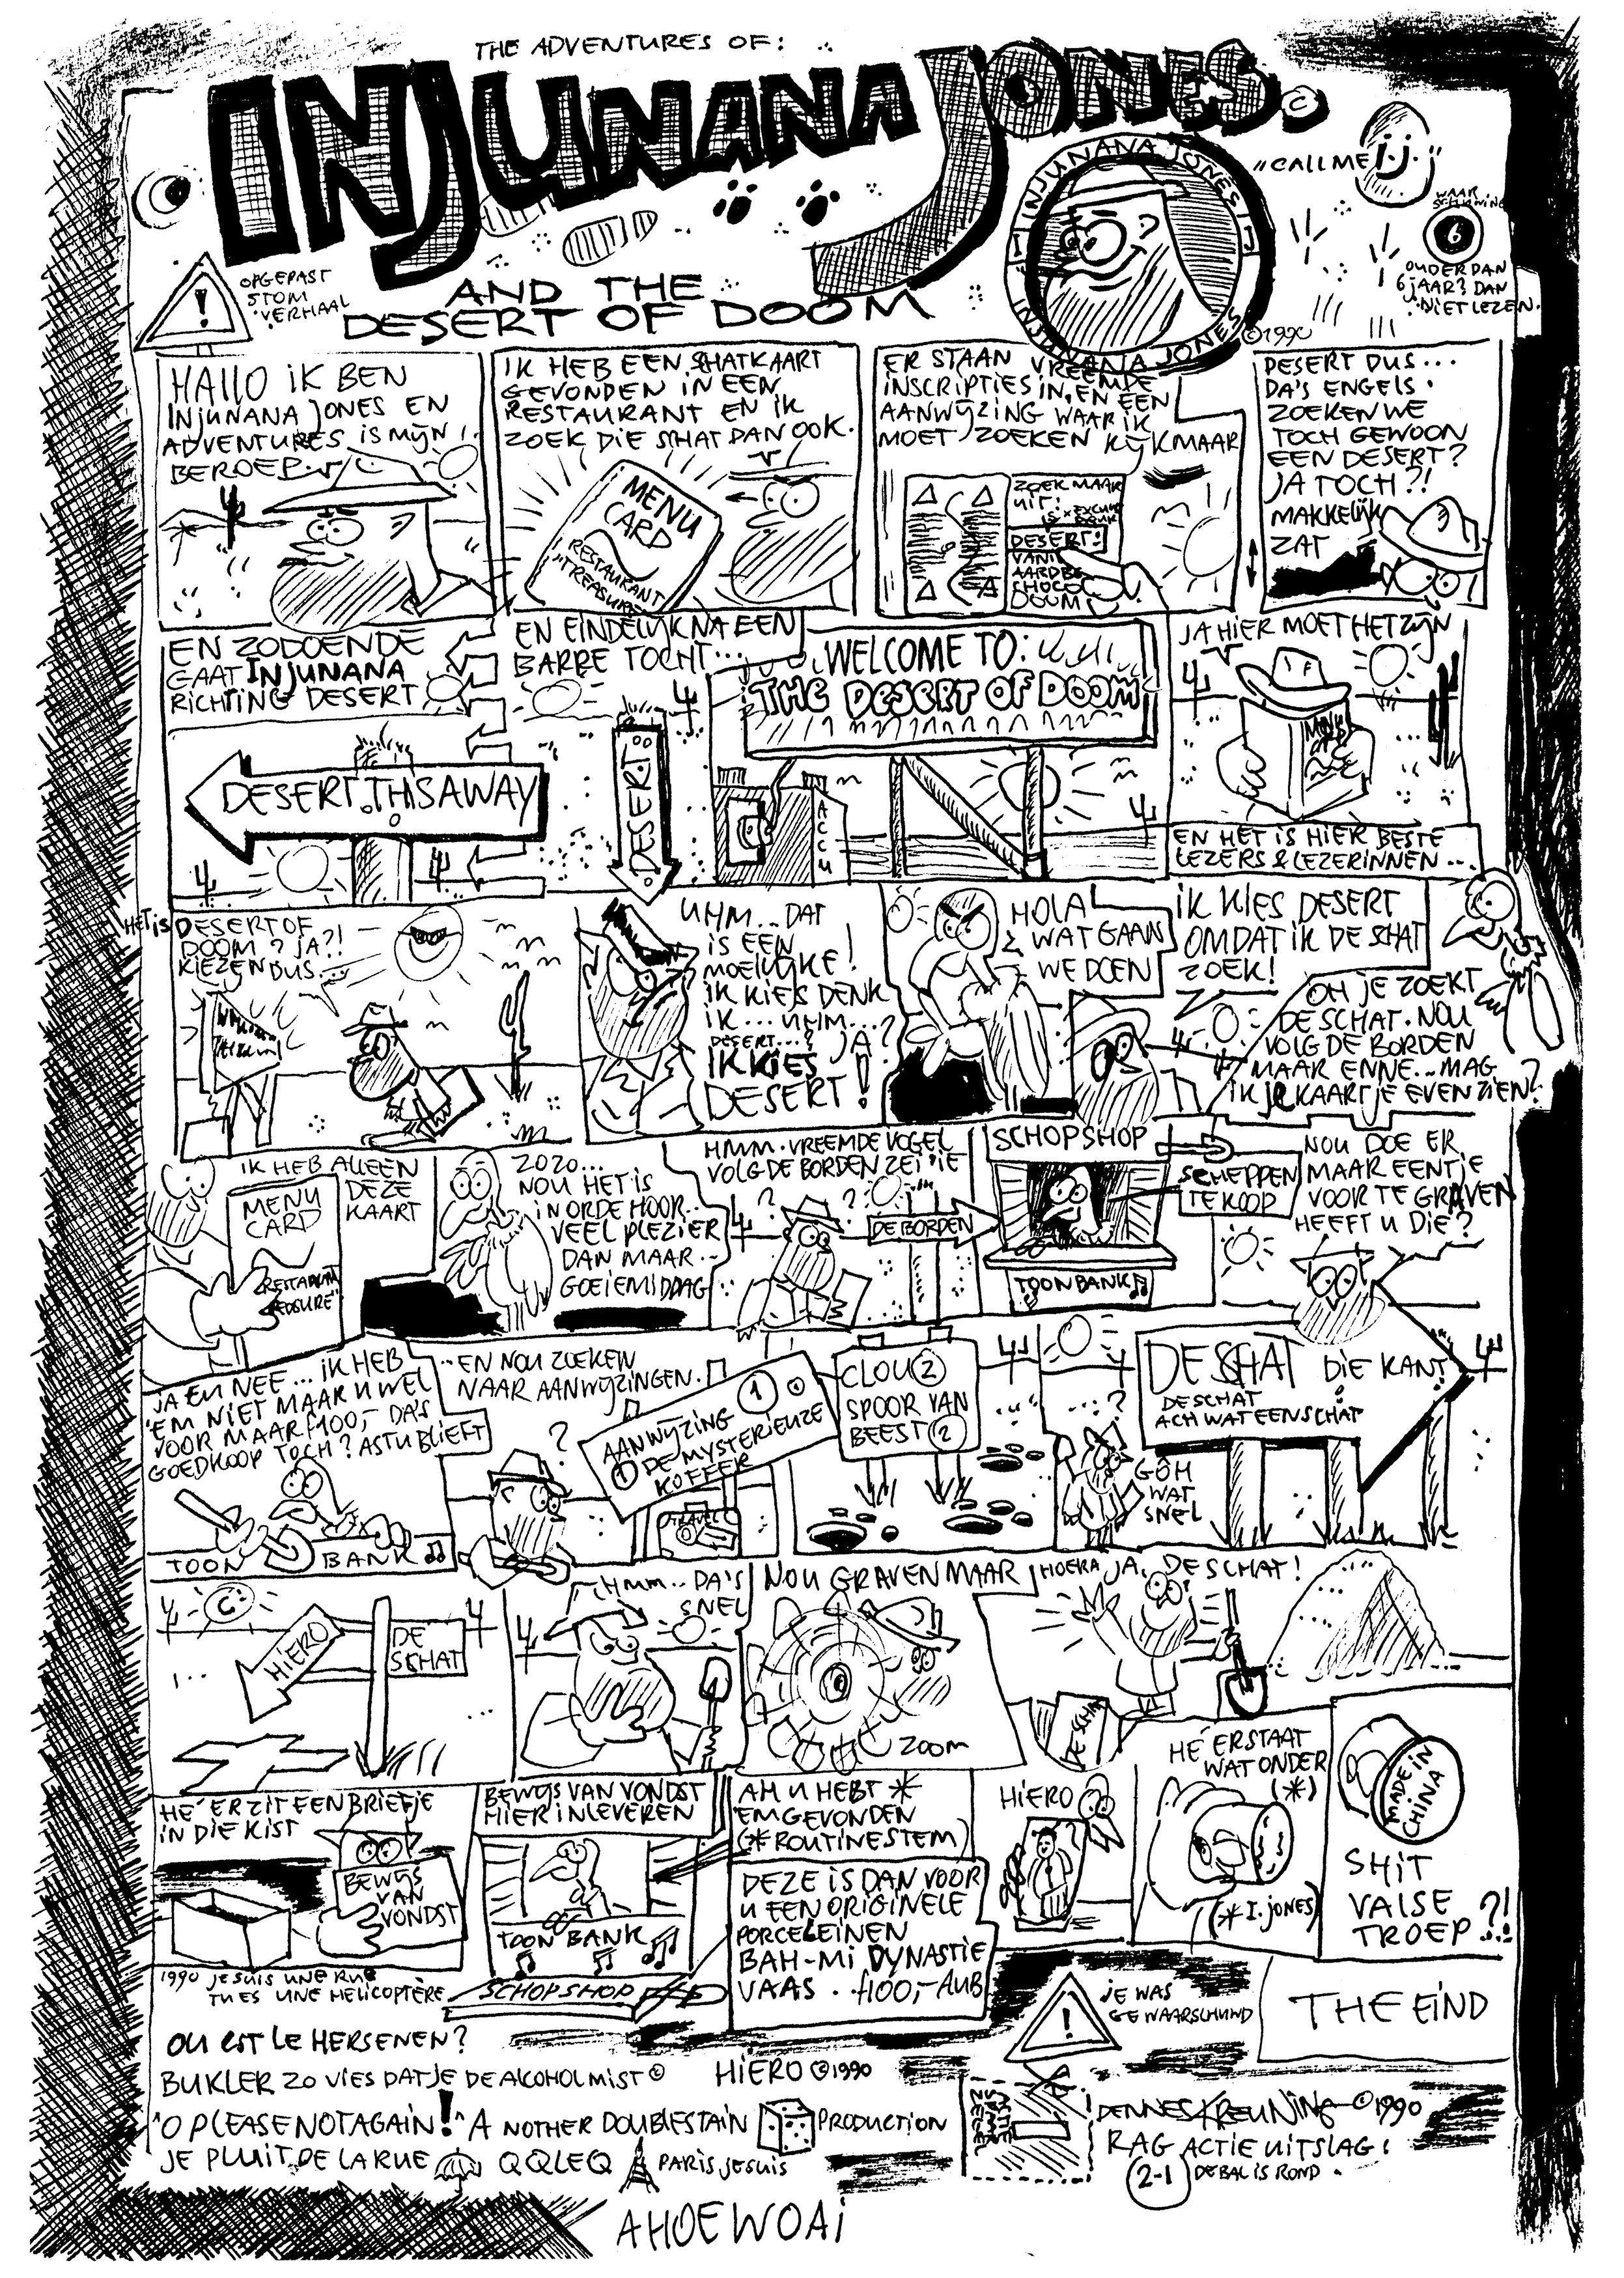 THE ADVENTURES OF:
INJUNANA JONES ©
AND THE
DESERT OF DOOM
"CALL ME J.J."
INJUNANA JONES
INJUNANA JONES
©1990
WAAR
SCHUWING
6
OUDER DAN
6 JAAR? DAN
NIET LEZEN.
!
OPGEPAST
STOM
VERHAAL
HALLO IK BEN
INJUNANA JONES EN
ADVENTURES IS MIJN
BEROEP.
IK HEB EEN SHATKAART
GEVONDEN IN EEN
RESTAURANT EN IK
ZOEK DIE SHAT DAN OOK.
MENU
CARD
RESTAURANT
"TREASURE"
ER STAAN VREEMDE
INSCRIPTIES IN, EN EEN
AANWIJZING WAAR IK
MOET ZOEKEN KIJK MAAR
ZOEK MAAR
UIT:
DESERT:
VANI
AARDBE
CHOCO
DOOM
DESERT DUS...
DA'S ENGELS.
ZOEKEN WE
TOCH GEWOON
EEN DESERT?
JA TOCH?!
MAKKELIJK
ZAT
EN ZODOENDE
GAAT INJUNANA
RICHTING DESERT
DESERT THISAWAY
EN EINDELIJK NA EEN
BARRE TOCHT...
DESERT
WELCOME TO:
THE DESERT OF DOOM
ACCU
JA HIER MOET HET ZIJN
EN HET IS HIER BESTE
LEZERS & LEZERINNEN...
HET IS DESERT OF
DOOM? JA?!
KIEZEN DUS...
UHM... DAT
IS EEN
MOEILIJKE!
IK KIES DENK
IK... UHM...
DESERT...? JA?
IK KIES
DESERT!
HOLA
WAT GAAN
WE DOEN
IK KIES DESERT
OMDAT IK DE SCHAT
ZOEK!
OH JE ZOEKT
DE SCHAT. NOU
VOLG DE BORDEN
MAAR ENNE... MAG
IK JE KAARTJE EVEN ZIEN?
IK HEB ALLEEN
DEZE
KAART
MENU
CARD
ZOZO...
NOU HET IS
IN ORDE HOOR..
VEEL PLEZIER
DAN MAAR...
GOEIEMIDDAG
HMM. VREEMDE VOGEL
VOLG DE BORDEN ZEI 'IE
? ?
DE BORDEN
SCHOPSHOP
SCHEPPEN
TE KOOP
TOONBANK
NOU DOE ER
MAAR EENTJE
VOOR TE GRAVEN
HEEFT U DIE?
JA EN NEE... IK HEB
'EM NIET MAAR U WEL
VOOR MAAR f100,- DA'S
GOEDKOOP TOCH? ASTUBLIEFT
TOON BANK
..EN NOU ZOEKEN
NAAR AANWIJZINGEN.
?
AANWIJZING 1
1 DE MYSTERIEUZE
KOFFER
TRAVEL
CLOU 2
SPOOR VAN
BEEST 2
...?
GÔH
WAT
SNEL
DE SCHAT DIE KANT
DE SCHAT
ACH WAT EEN SCHAT
HIERO
DE
SCHAT
HMM.. DA'S
SNEL
NOU GRAVEN MAAR
ZOOM
HOERA JA, DE SCHAT!
DE SCHAT
HE' ER ZIT EEN BRIEFJE
IN DIE KIST
BEWIJS
VAN
VONDST
BEWIJS VAN VONDST
HIER INLEVEREN
TOON BANK
SCHOPSHOP
AH U HEBT *
'EM GEVONDEN
(* ROUTINESTEM)
DEZE IS DAN VOOR
U EEN ORIGINELE
PORCELEINEN
BAH-MI DYNASTIE
VAAS. f100,- AUB
HIERO
HE' ER STAAT
WAT ONDER
(*)
(* I. JONES)
MADE IN
CHINA
SHIT
VALSE
TROEP ?!
!
JE WAS
GEWAARSCHUWD
THE EIND
1990 JE SUIS UNE RUE
TU ES UNE HELICOPTÈRE
OU EST LE HERSENEN?
BUKLER ZO VIES DAT JE DE ALCOHOL MIST ©
HIERO ©1990
"O PLEASE NOT AGAIN!" A NOTHER DOUBLESTAIN PRODUCTION
JE PLUIT DE LA RUE QQLEQ PARIS JE SUIS
DENNES KREUNING ©1990
RAG ACTIE UITSLAG:
2-1 DE BAL IS ROND.
AHOEWOAI